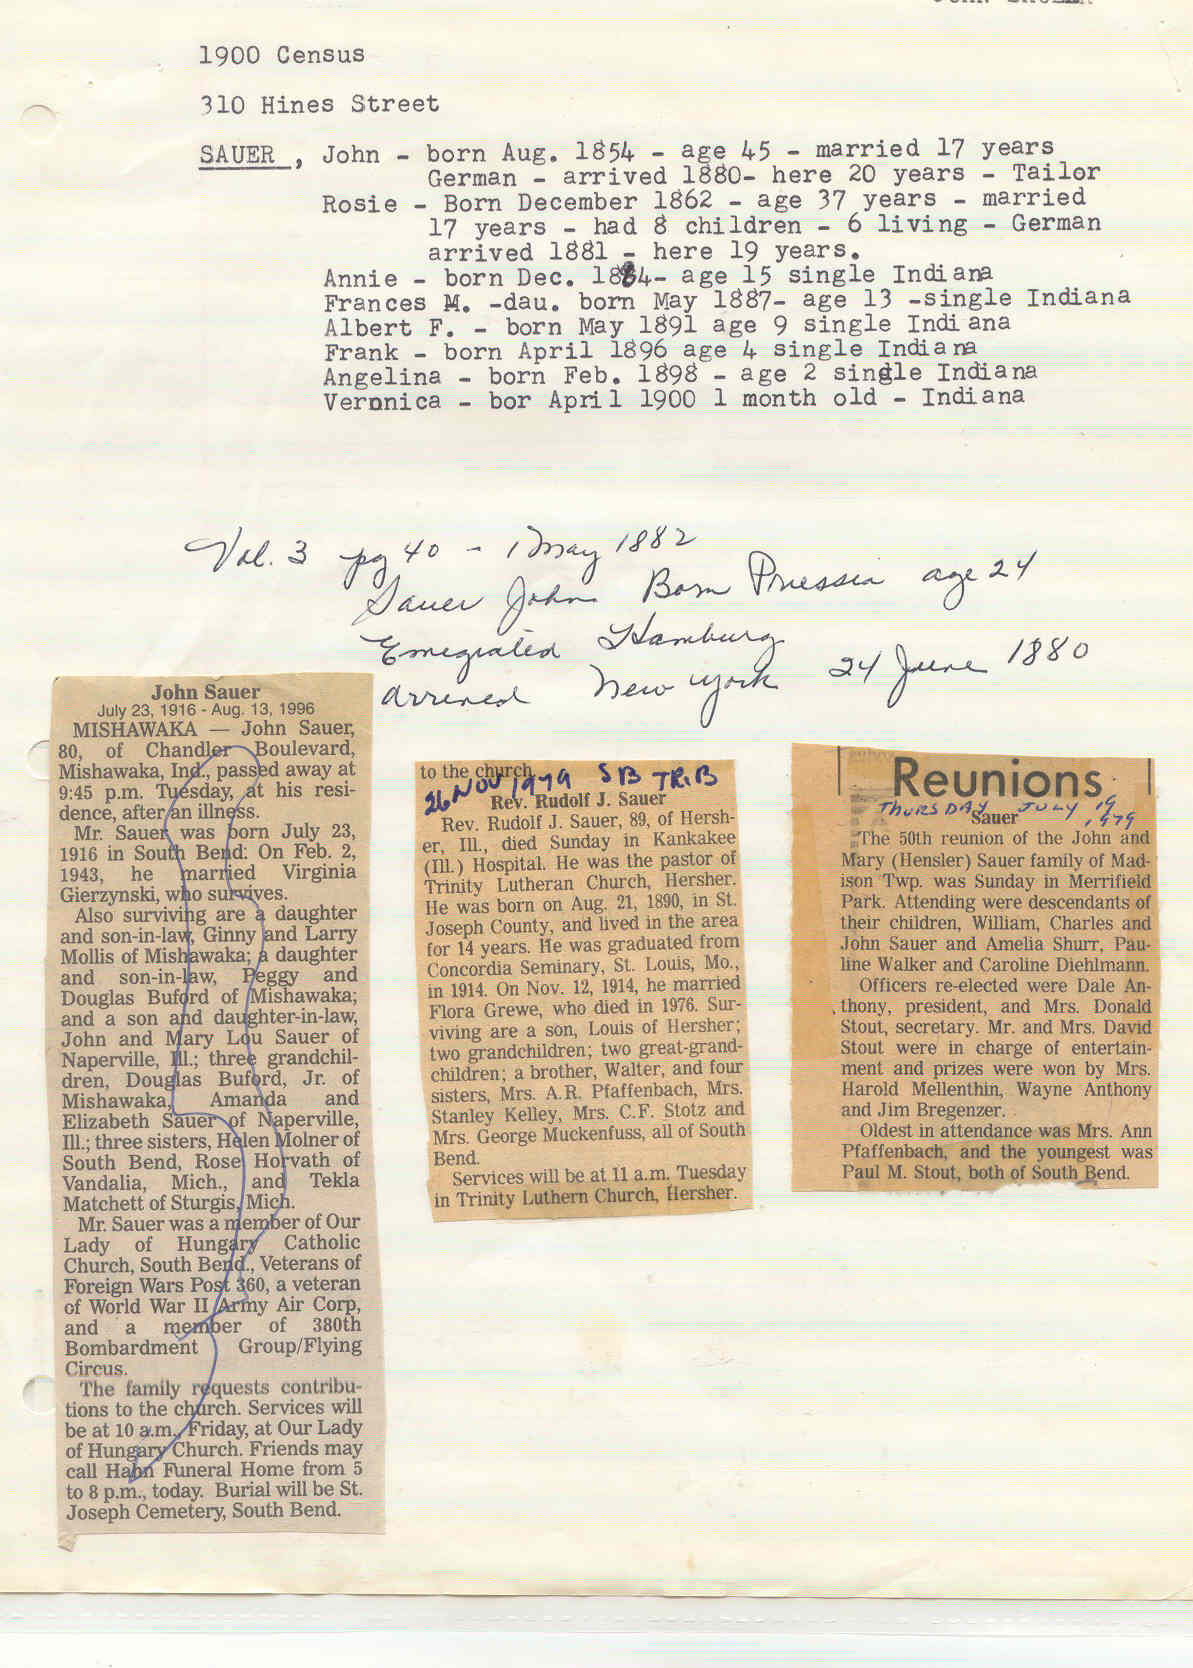 1900 Census
310 Hines Street
SAUER , John - born Aug. 1854 - age 45 - married 17 years
German - arrived 1880- here 20 years - Tailor
Rosie - Born December 1862 - age 37 years - married
17 years - had 8 children - 6 living - German
arrived 1881 - here 19 years.
Annie - born Dec. 1884- age 15 single Indiana
Frances M. -dau. born May 1887- age 13 -single Indiana
Albert F. - born May 1891 age 9 single Indiana
Frank - born April 1896 age 4 single Indiana
Angelina - born Feb. 1898 - age 2 single Indiana
Veronica - bor April 1900 1 month old - Indiana
Vol. 3 pg 40 - 1 May 1882
Sauer John Born Pruessia age 24
Emegrated Hamburg
arrived New York 24 June 1880
John Sauer
July 23, 1916 - Aug. 13, 1996
MISHAWAKA — John Sauer,
80, of Chandler Boulevard,
Mishawaka, Ind., passed away at
9:45 p.m. Tuesday, at his resi-
dence, after an illness.
Mr. Sauer was born July 23,
1916 in South Bend: On Feb. 2,
1943, he married Virginia
Gierzynski, who survives.
Also surviving are a daughter
and son-in-law, Ginny and Larry
Mollis of Mishawaka; a daughter
and son-in-law, Peggy and
Douglas Buford of Mishawaka;
and a son and daughter-in-law,
John and Mary Lou Sauer of
Naperville, Ill.; three grandchil-
dren, Douglas Buford, Jr. of
Mishawaka, Amanda and
Elizabeth Sauer of Naperville,
Ill.; three sisters, Helen Molner of
South Bend, Rose Horvath of
Vandalia, Mich., and Tekla
Matchett of Sturgis, Mich.
Mr. Sauer was a member of Our
Lady of Hungary Catholic
Church, South Bend., Veterans of
Foreign Wars Post 360, a veteran
of World War II Army Air Corp,
and a member of 380th
Bombardment Group/Flying
Circus.
The family requests contribu-
tions to the church. Services will
be at 10 a.m., Friday, at Our Lady
of Hungary Church. Friends may
call Hahn Funeral Home from 5
to 8 p.m., today. Burial will be St.
Joseph Cemetery, South Bend.
to the church.
26 NOV 1979 SB TRIB
Rev. Rudolf J. Sauer
Rev. Rudolf J. Sauer, 89, of Hersh-
er, Ill., died Sunday in Kankakee
(Ill.) Hospital. He was the pastor of
Trinity Lutheran Church, Hersher.
He was born on Aug. 21, 1890, in St.
Joseph County, and lived in the area
for 14 years. He was graduated from
Concordia Seminary, St. Louis, Mo.,
in 1914. On Nov. 12, 1914, he married
Flora Grewe, who died in 1976. Sur-
viving are a son, Louis of Hersher;
two grandchildren; two great-grand-
children; a brother, Walter, and four
sisters, Mrs. A.R. Pfaffenbach, Mrs.
Stanley Kelley, Mrs. C.F. Stotz and
Mrs. George Muckenfuss, all of South
Bend.
Services will be at 11 a.m. Tuesday
in Trinity Luthern Church, Hersher.
Reunions
THURSDAY JULY 19, 1979
Sauer
The 50th reunion of the John and
Mary (Hensler) Sauer family of Mad-
ison Twp. was Sunday in Merrifield
Park. Attending were descendants of
their children, William, Charles and
John Sauer and Amelia Shurr, Pau-
line Walker and Caroline Diehlmann.
Officers re-elected were Dale An-
thony, president, and Mrs. Donald
Stout, secretary. Mr. and Mrs. David
Stout were in charge of entertain-
ment and prizes were won by Mrs.
Harold Mellenthin, Wayne Anthony
and Jim Bregenzer.
Oldest in attendance was Mrs. Ann
Pfaffenbach, and the youngest was
Paul M. Stout, both of South Bend.